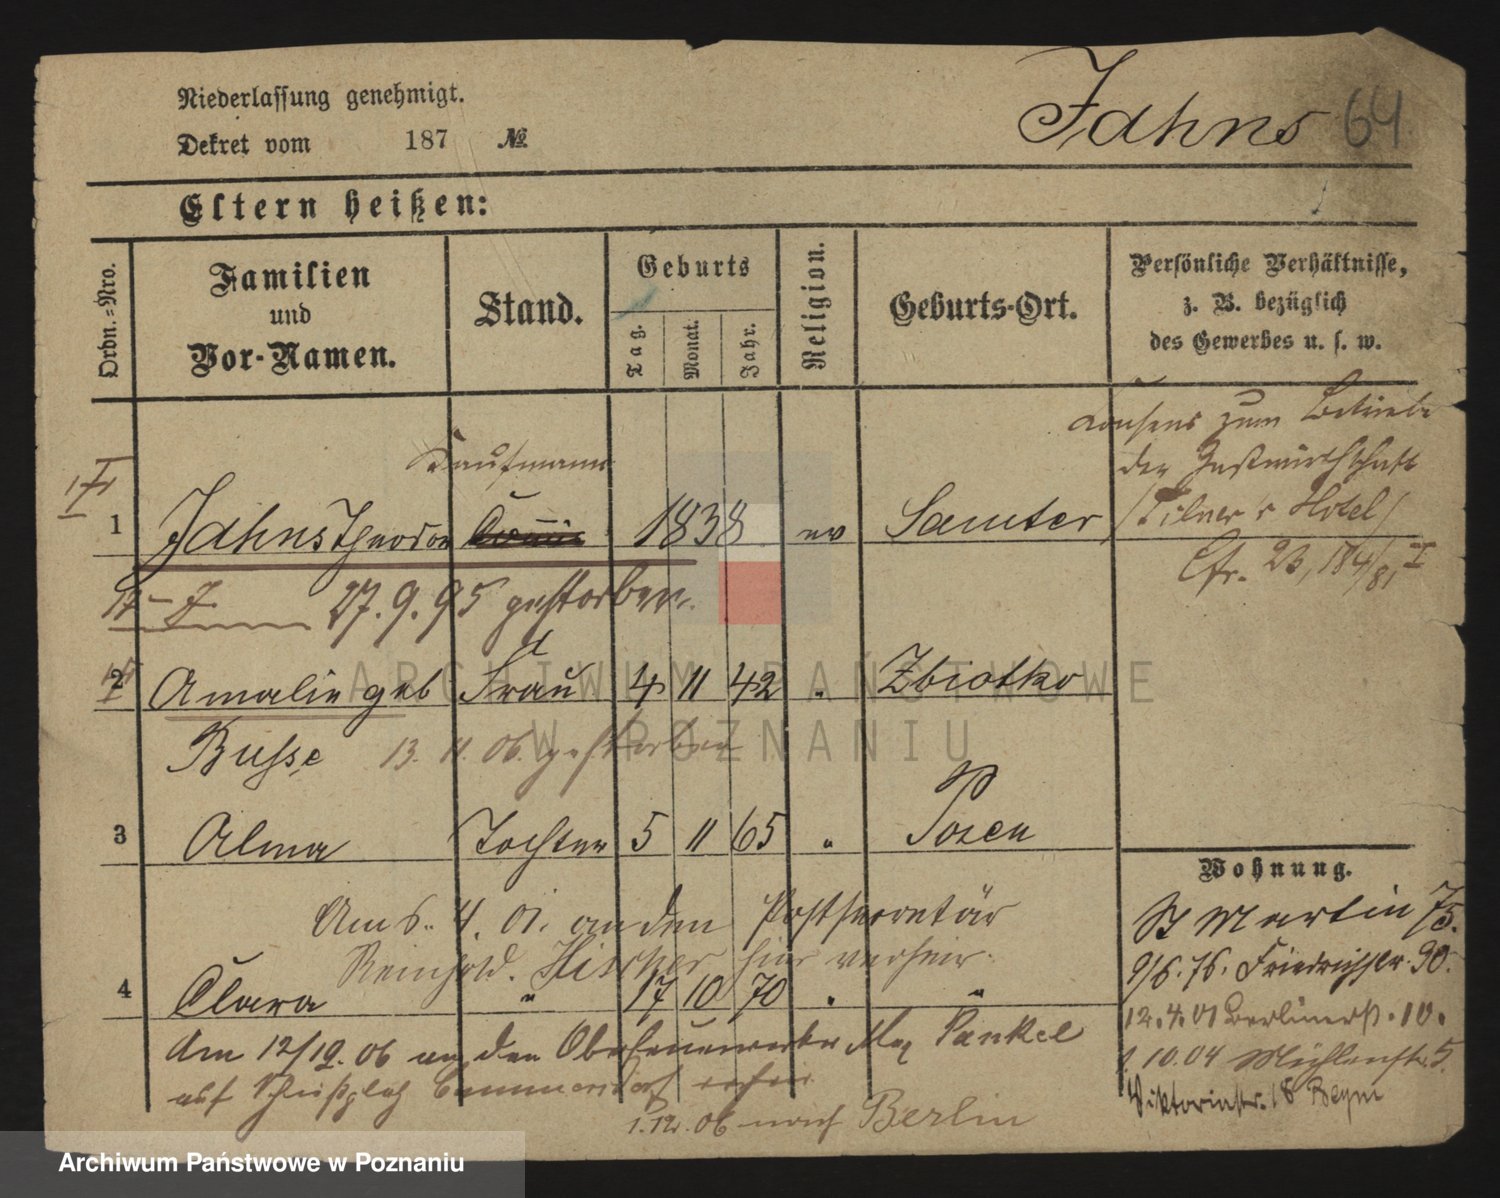 Niederlassung genehmigt.
Dekret vom 187 №
Jahns 64
Eltern heißen:
Ordn.-Nro.
Familien
und
Vor-Namen.
Stand.
Geburts
Tag.
Monat.
Jahr.
Religion.
Geburts-Ort.
Persönliche Verhältnisse,
z. B. bezüglich
des Gewerbes u. s. w.
Consens zum Betriebe
der Gastwirthschaft
/Tilner's Hotel/
Cfr. 23, 184/81 I
Kaufmann
1 Jahns Theodor Commis 1838 ev Samter
27.9.95 gestorben.
2 Amalie geb Frau 4 11 42 " Zbiotko
Busse 13. 11. 06. gestorben
3 Alma Tochter 5 11 65 " Posen
Am 6. 4. 01. an den Postsecretär
Reinhold hier verheir.
4 Clara " 17 10 70 " "
Am 12/12. 06 an den Oberfeuerwerker Max Pankel
auf Schießplatz Cummersdorf verheir.
1.12. 06 nach Berlin
Wohnung.
St Martin 75.
9/6. 76. Friedrichstr. 90.
12. 4. 01 Berlinerstr. 10.
1. 10. 04 Mühlenstr. 5.
Viktoriastr. 18
ARCHIWUM PAŃSTWOWE
W POZNANIU
Archiwum Państwowe w Poznaniu